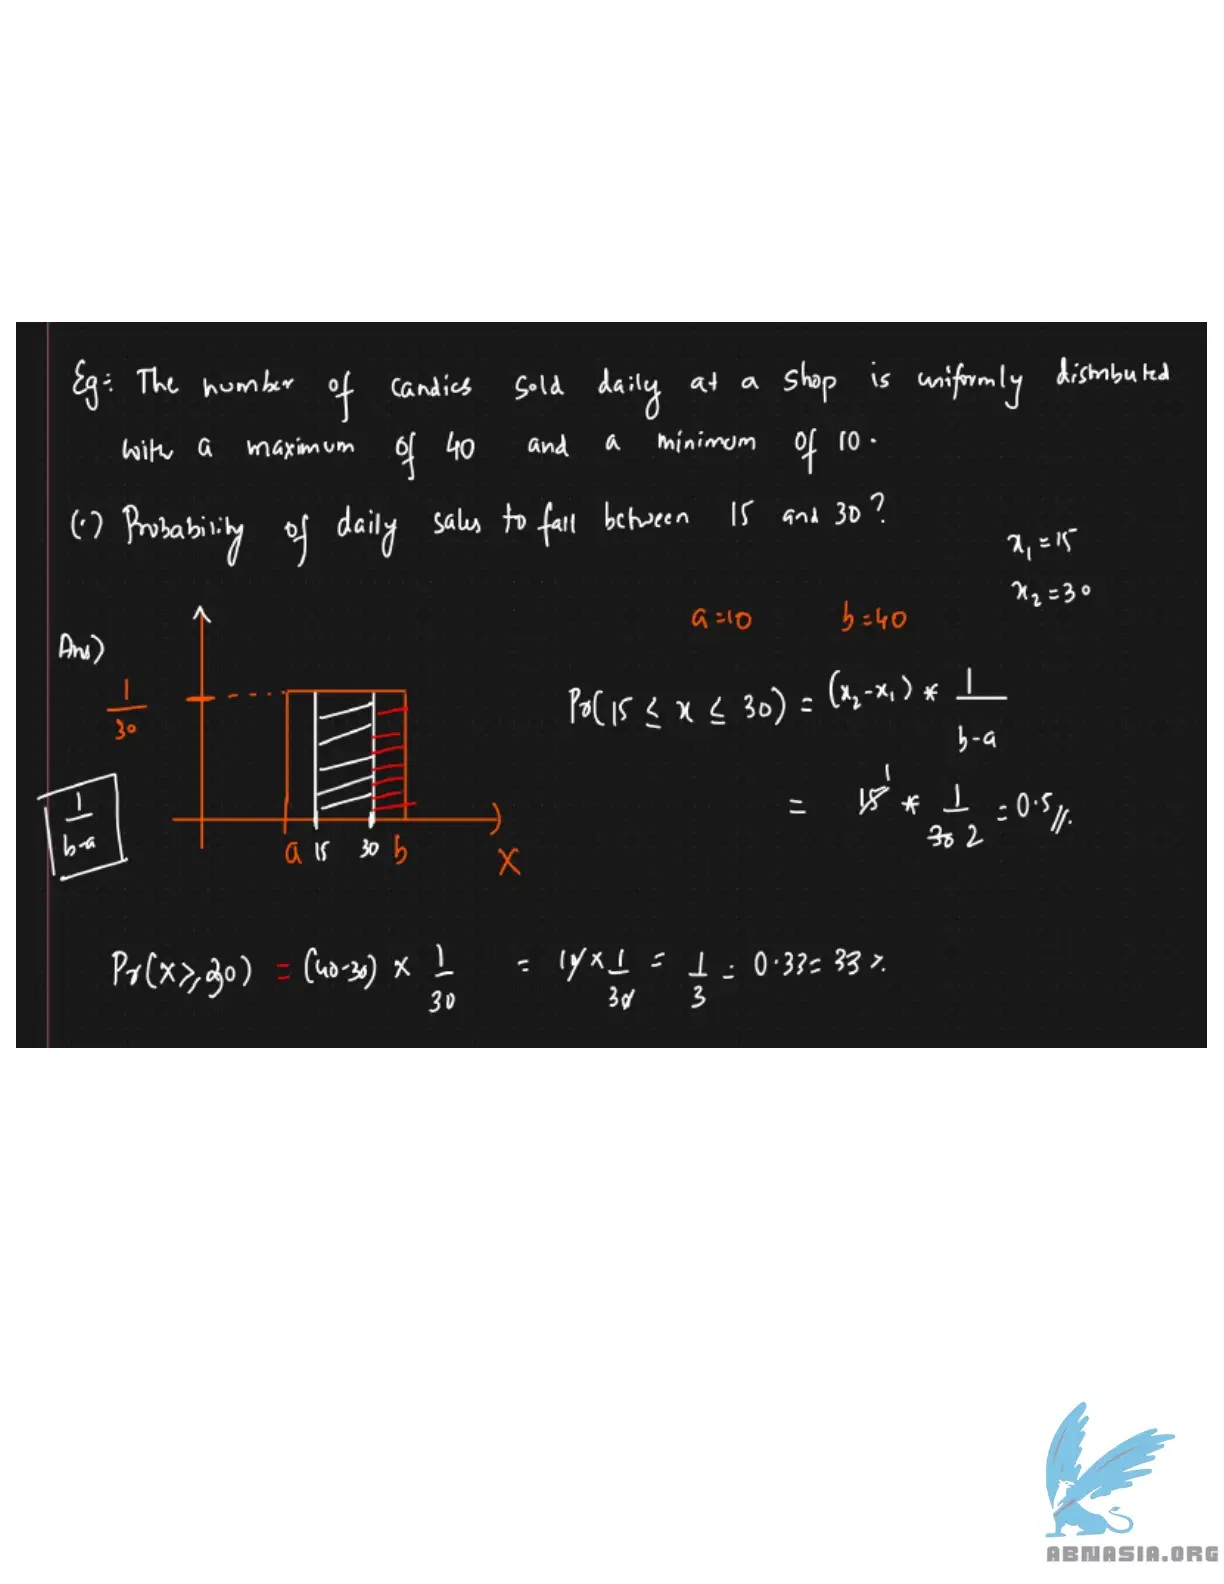 Eg:- The number of candies sold daily at a shop is uniformly distributed
with a maximum of 40 and a minimum of 10.
(.) Probability of daily sales to fall between 15 and 30?
x₁ = 15
x₂ = 30
a = 10 b = 40
Ans)
1/30
Pr(15 ≤ x ≤ 30) = (x₂-x₁) * 1/b-a
1/b-a
= 15 1 * 1/30 2 = 0.5//.
a 15 30 b X
Pr(X ≥ 30) = (40-30) × 1/30 = 10 × 1/30 = 1/3 = 0.33 = 33 %
ABNASIA.ORG